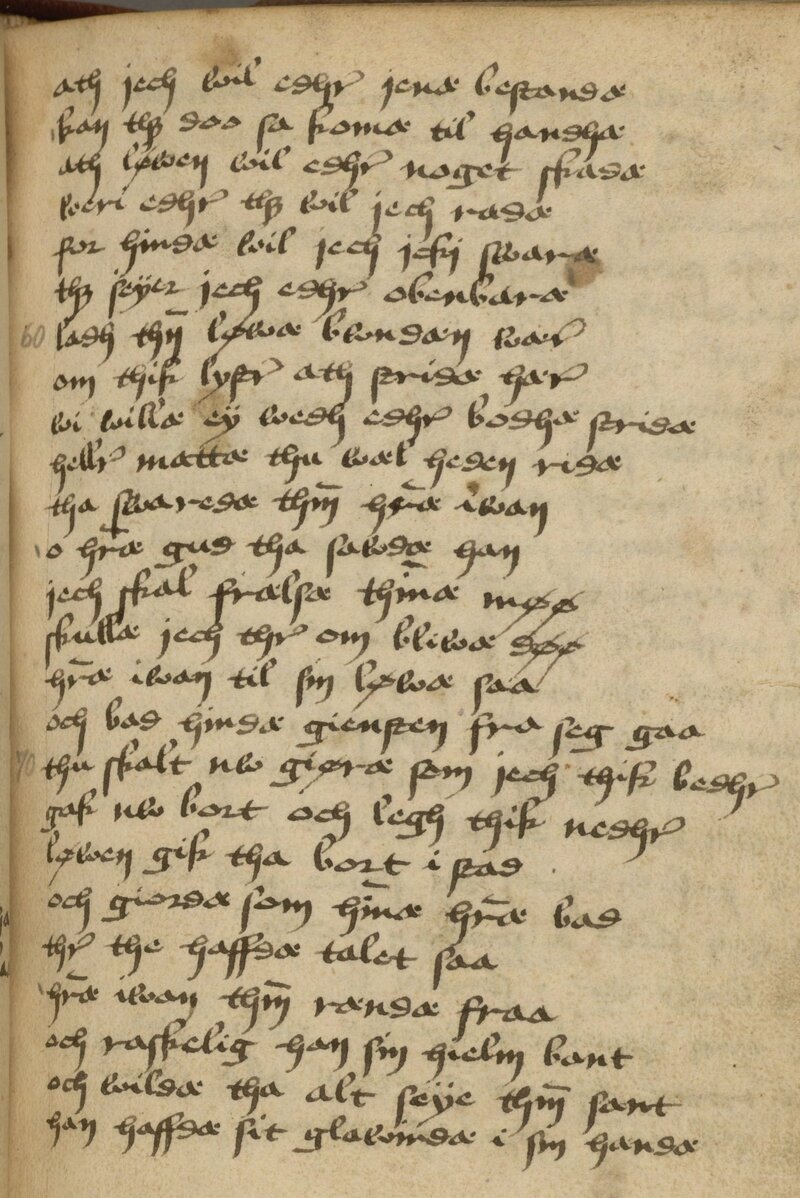 ath jech wil edhr̄ jenæ bestandæ
kan thꝫ doo sa komæ til handhæ
ath løwen wil edhr̄ noget skadæ
weri edhr̄ thꝫ wil jech radæ
for hindæ wil jech jckj swaræ
thꝫ seÿer jech edhr̄ obenbaræ
60 ladh thn̄ løwæ bwndæn wær̄
om thik lÿstr̄ ath stridæ hær̄
wi willæ eÿ wedh edhr̄ bodhæ stridæ
hellr̄ mattæ thu wæl heden ridæ
tha swaredæ thm̄ hr̄æ iwan
o hr̄æ gud tha sawdæ han
jech skal frælsæ thin̄æ møø
skullæ jech thr̄ om bliwæ døø
hr̄æ iwan til sin løwæ saa
och bad hindæ giensten fra seg gaa
70 thu skalt nw giøræ som jech thik bedhr̄
gak nw bort och legh thik nedhr̄
løwen gik tha bort i stad
och giordæ som hin̄æ hr̄æ bad
thr̄ the haffdæ talet saa
hr̄æ iwan thm̄ rændæ fraa
och raskelig han sin hielm bant
och wildæ tha alt seÿe thm̄ sant
han haffdæ sit glawindæ i sin handæ